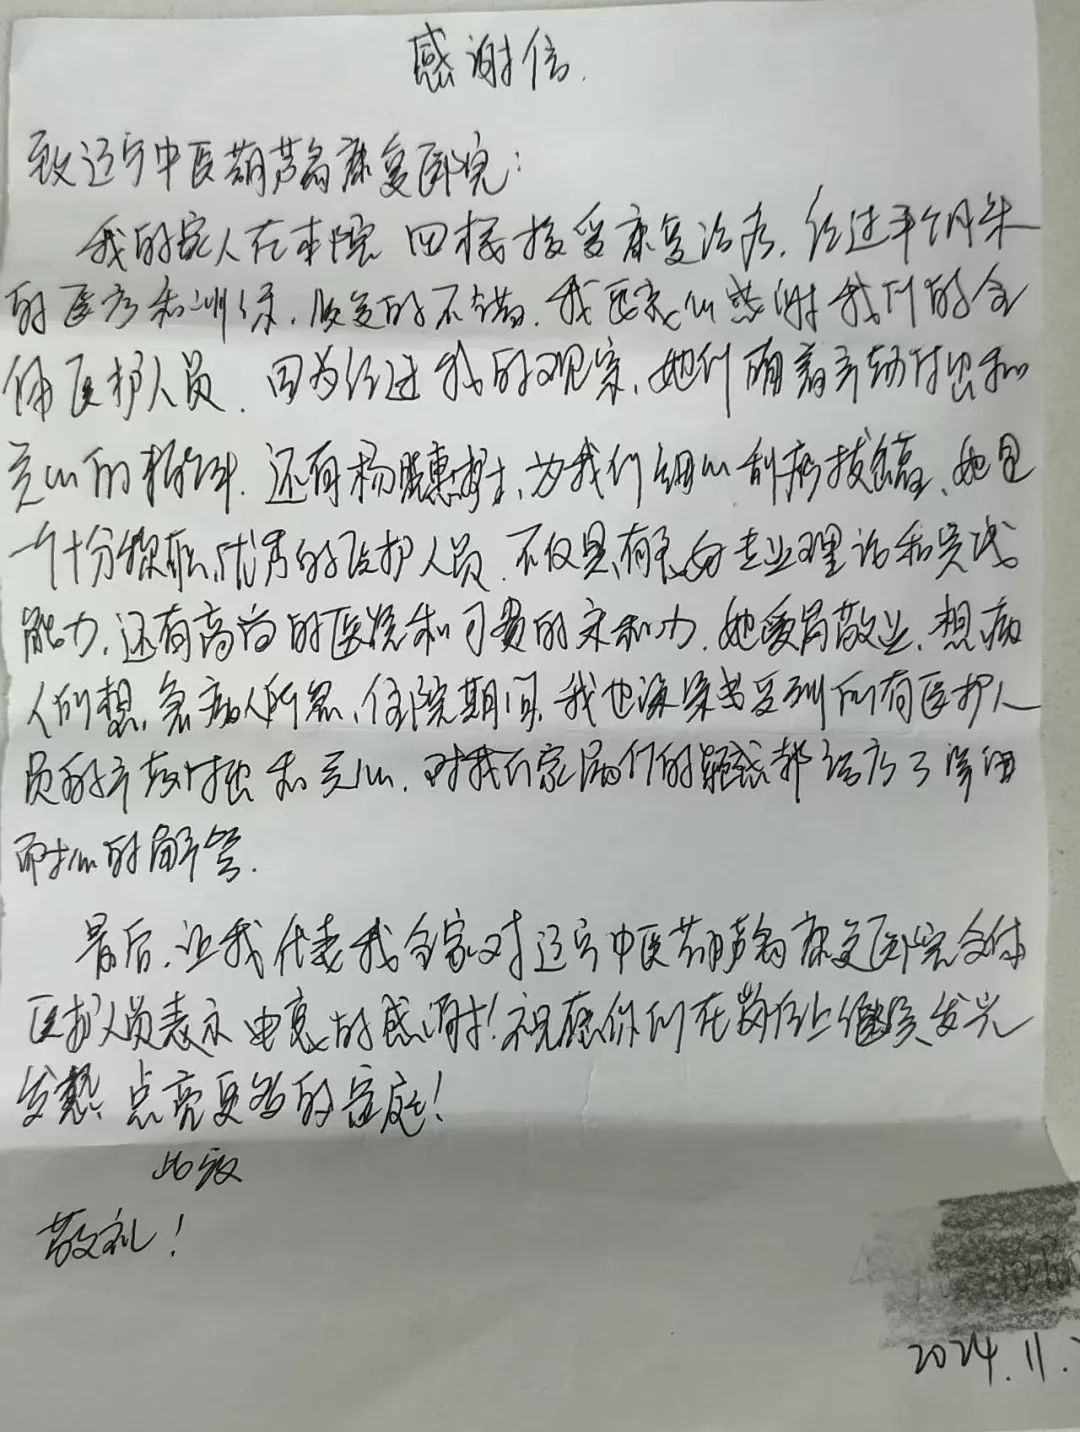 感谢信
致辽宁中医葫芦岛康复医院：
我的家人在本院四楼接受康复治疗，经过半个月来
的医疗和训练，恢复的不错，我衷心感谢我们的全
体医护人员，因为经过我的观察，她们确辛劳付出和
关心的，还有杨护士，为我们细心刮痧拔罐，她是
一个十分称职，优秀的医护人员，不仅具有良好专业理论和实践
能力，还有高尚的医德和可贵的亲和力，她爱岗敬业，想病
人所想，急病人所急，住院期间，我也深深感受到所有医护人
员的辛劳付出和关心，对我们家属们的疑惑都给予了详细
耐心的解答。
最后，让我代表我全家对辽宁中医葫芦岛康复医院全体
医护人员表示由衷的感谢！祝愿你们在岗位上继续发光
发热，点亮更多的家庭！
此致
敬礼！
2024.11.